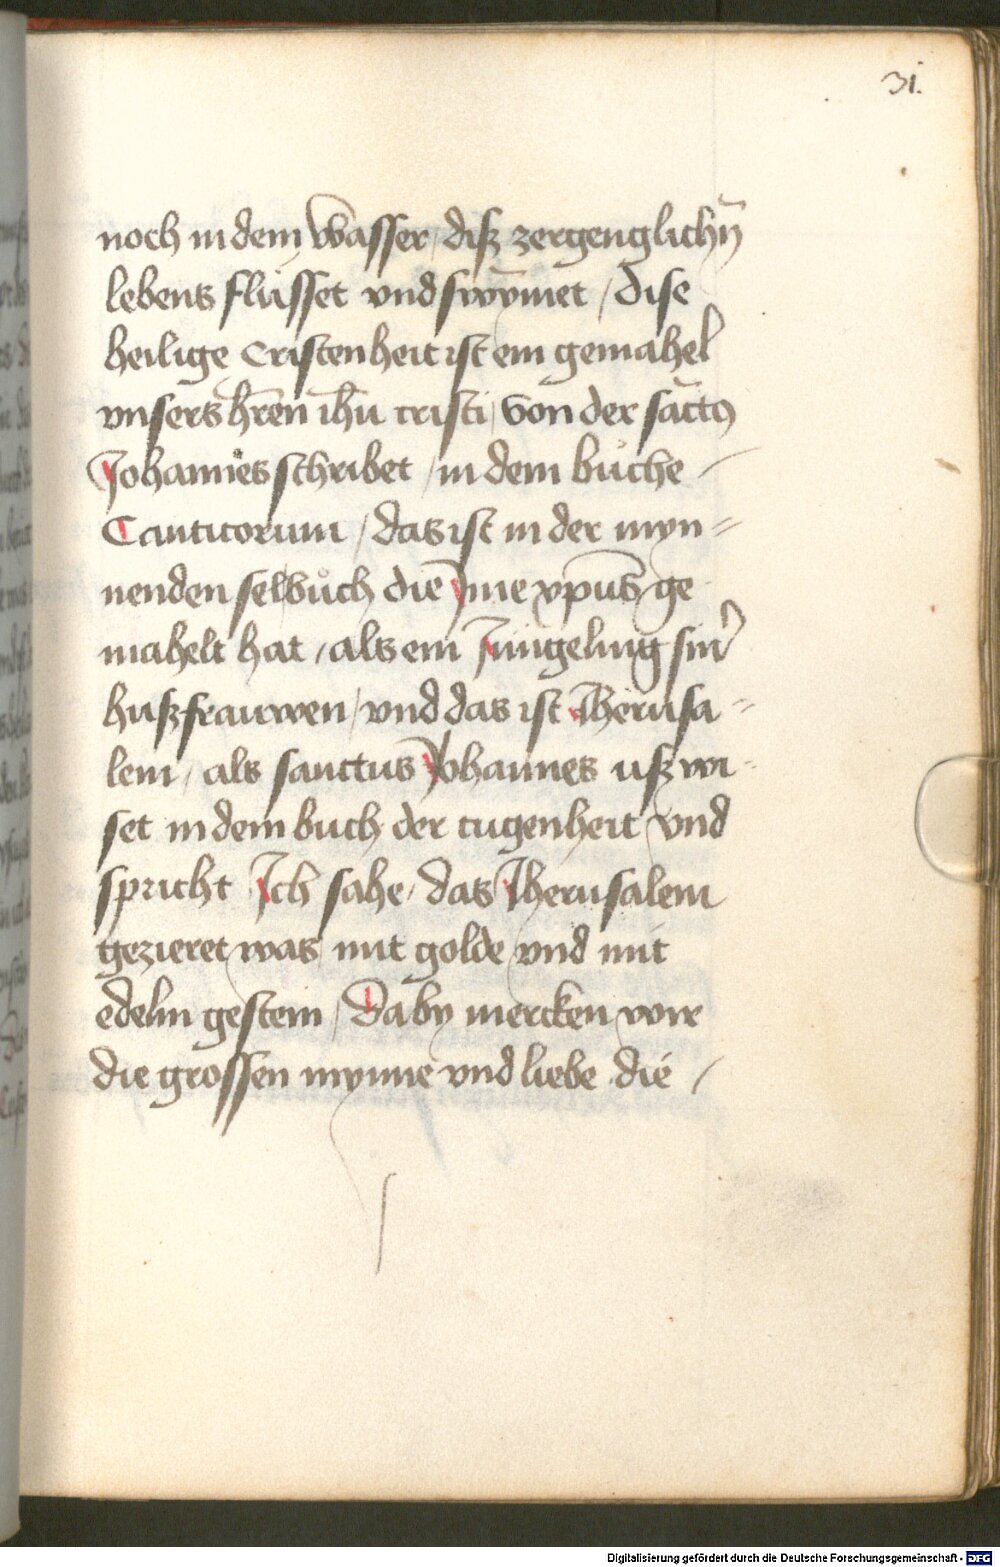 31.
noch in dem wasser / disz zergenglichn̄
lebens flüsset vnd swym̄et / dise
heilige Cristenheit ist ein gemahel
vnsers hr̄en ih̄u cristi / von der sāctus
Johannes schribet / in dem bůche /
Canticorum / das ist in der myn=
nenden selbůch die yme xpūs ge
mahelt hat / als ein Jungeling sinr̕
huszfrauwen / vnd das ist Jherusa=
lem / als sanctus Johannes uszwi=
set in dem buch der tugenheit vnd
spricht Ich sahe / das Jherusalem
gezieret was mit golde vnd mit
edelm gestein / Da by mercken wir
die grossen mynne vnd liebe die /
Digitalisierung gefördert durch die Deutsche Forschungsgemeinschaft - DFG